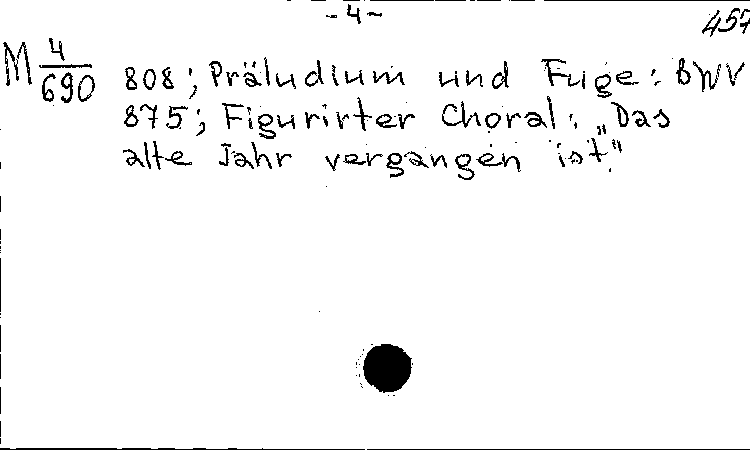 - 4 -
457
M 4/690 808; Präludium und Fuge: BWV
875; Figurirter Choral: „Das
alte Jahr vergangen ist."